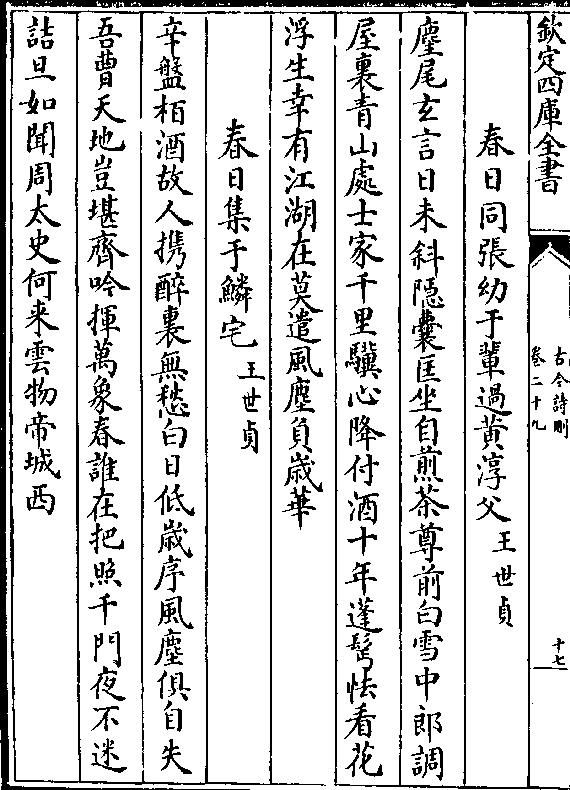 欽定四庫全書
古今詩刪
卷二十九
十七
春日同張幼于輩過黃淳父 王世貞
麈尾玄言日未斜隱囊匡坐自煎茶尊前白雪中郎調
屋裏青山處士家千里驥心降付酒十年蓬髩怯看花
浮生幸有江湖在莫遣風塵負歲華
春日集于鱗宅 王世貞
辛盤栢酒故人携醉裏無愁白日低歲序風塵俱自失
吾曹天地豈堪齊吟揮萬象春誰在把照千門夜不迷
詰旦如聞周太史何来雲物帝城西